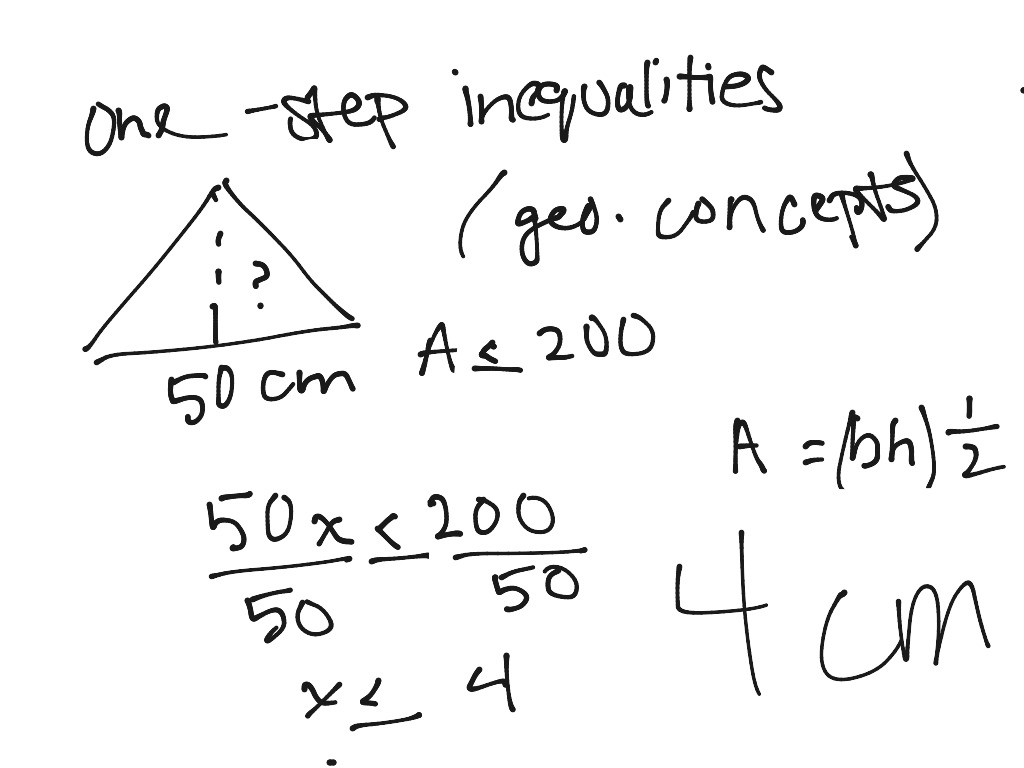 one-step inequalities
(geo. concepts)
?
50 cm
A ≤ 200
A = (bh) 1/2
50x ≤ 200
50 50
x ≤ 4
4 cm